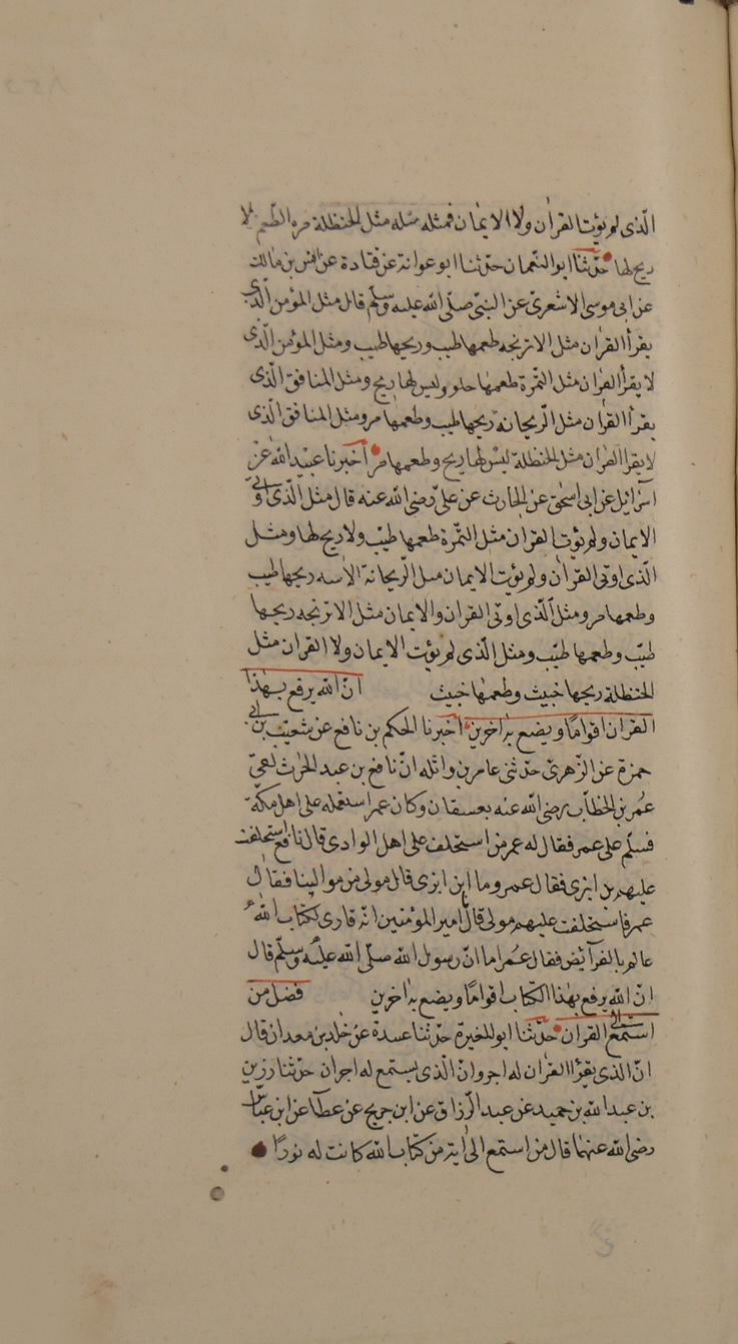 الّذى لم يؤت القرآن ولا الايمان فمثله مثله مثل الحنظلة مرة الطّعم لا
ريح لها حدّثنا ابو النعمان حدّثنا ابو عوانة عن قتادة عن انس بن مالك
عن ابى موسى الاشعرىّ عن النبىّ صلّى الله عليه وسلّم قال مثل المؤمن الّذى
يقرأ القرآن مثل الاترنجة طعمها طيب وريحها طيب ومثل المؤمن الّذى
لا يقرأ القرآن مثل التّمرة طعمها حلو وليس لها ريح ومثل المنافق الّذى
يقرأ القرآن مثل الرّيحانة ريحها طيب وطعمها مر ومثل المنافق الّذى
لا يقرأ القرآن مثل الحنظلة ليس لها ريح وطعمها مرّ اخبرنا عبيد الله عن
اسرآئيل عن ابى اسحق عن الحارث عن علىّ رضى الله عنه قال مثل الّذى اوتى
الايمان ولم يؤت القرآن مثل التّمرة طعمها طيّب ولا ريح لها ومثل
الّذى اوتى القرآن ولم يؤت الايمان مثل الرّيحانة الآسه ريحها طيب
وطعمها مر ومثل الّذى اوتى القرآن والايمان مثل الاترنجه ريحها
طيّب وطعمها طيّب ومثل الّذى لم يؤت الايمان ولا القرآن مثل
الحنظلة ريحها خبيث وطعمها خبيث انّ الله يرفع بهذا
القرآن اقواما ويضع به آخرين اخبرنا الحكم بن نافع عن شعيب بن ابى
حمزة عن الزّهرىّ حدّثنى عامر بن واثله انّ نافع بن عبد الحرث لقى
عمر بن الخطّاب رضى الله عنه بعسفان وكان عمر استعمله على اهل مكّة
فسلّم على عمر فقال له عمر من استخلفت على اهل الوادى قال نافع استخلفت
عليهم بن ابزى فقال عمر وما ابن ابزى قال مولى من موالينا فقال
عمر فاستخلفت عليهم مولى قال يا امير المؤمنين انّه قارى لكتاب الله
عالم بالفرآئض فقال عمر اما انّ رسول الله صلّى الله عليه وسلّم قال
انّ الله يرفع بهذا الكتاب اقواما ويضع به آخرين فضل من
استمع الى القرآن حدّثنا ابو المغيرة حدّثنا عبدة عن خلد بن معدان قال
انّ الذى يقرأ القرآن له اجر وانّ الّذى يستمع له اجران حدّثنا رزين
بن عبد الله بن حميد عن عبد الرّزاق عن ابن جريج عن عطآ عن ابن عبّاس
رضى الله عنهما قال من استمع الى آية من كتاب الله كانت له نورا